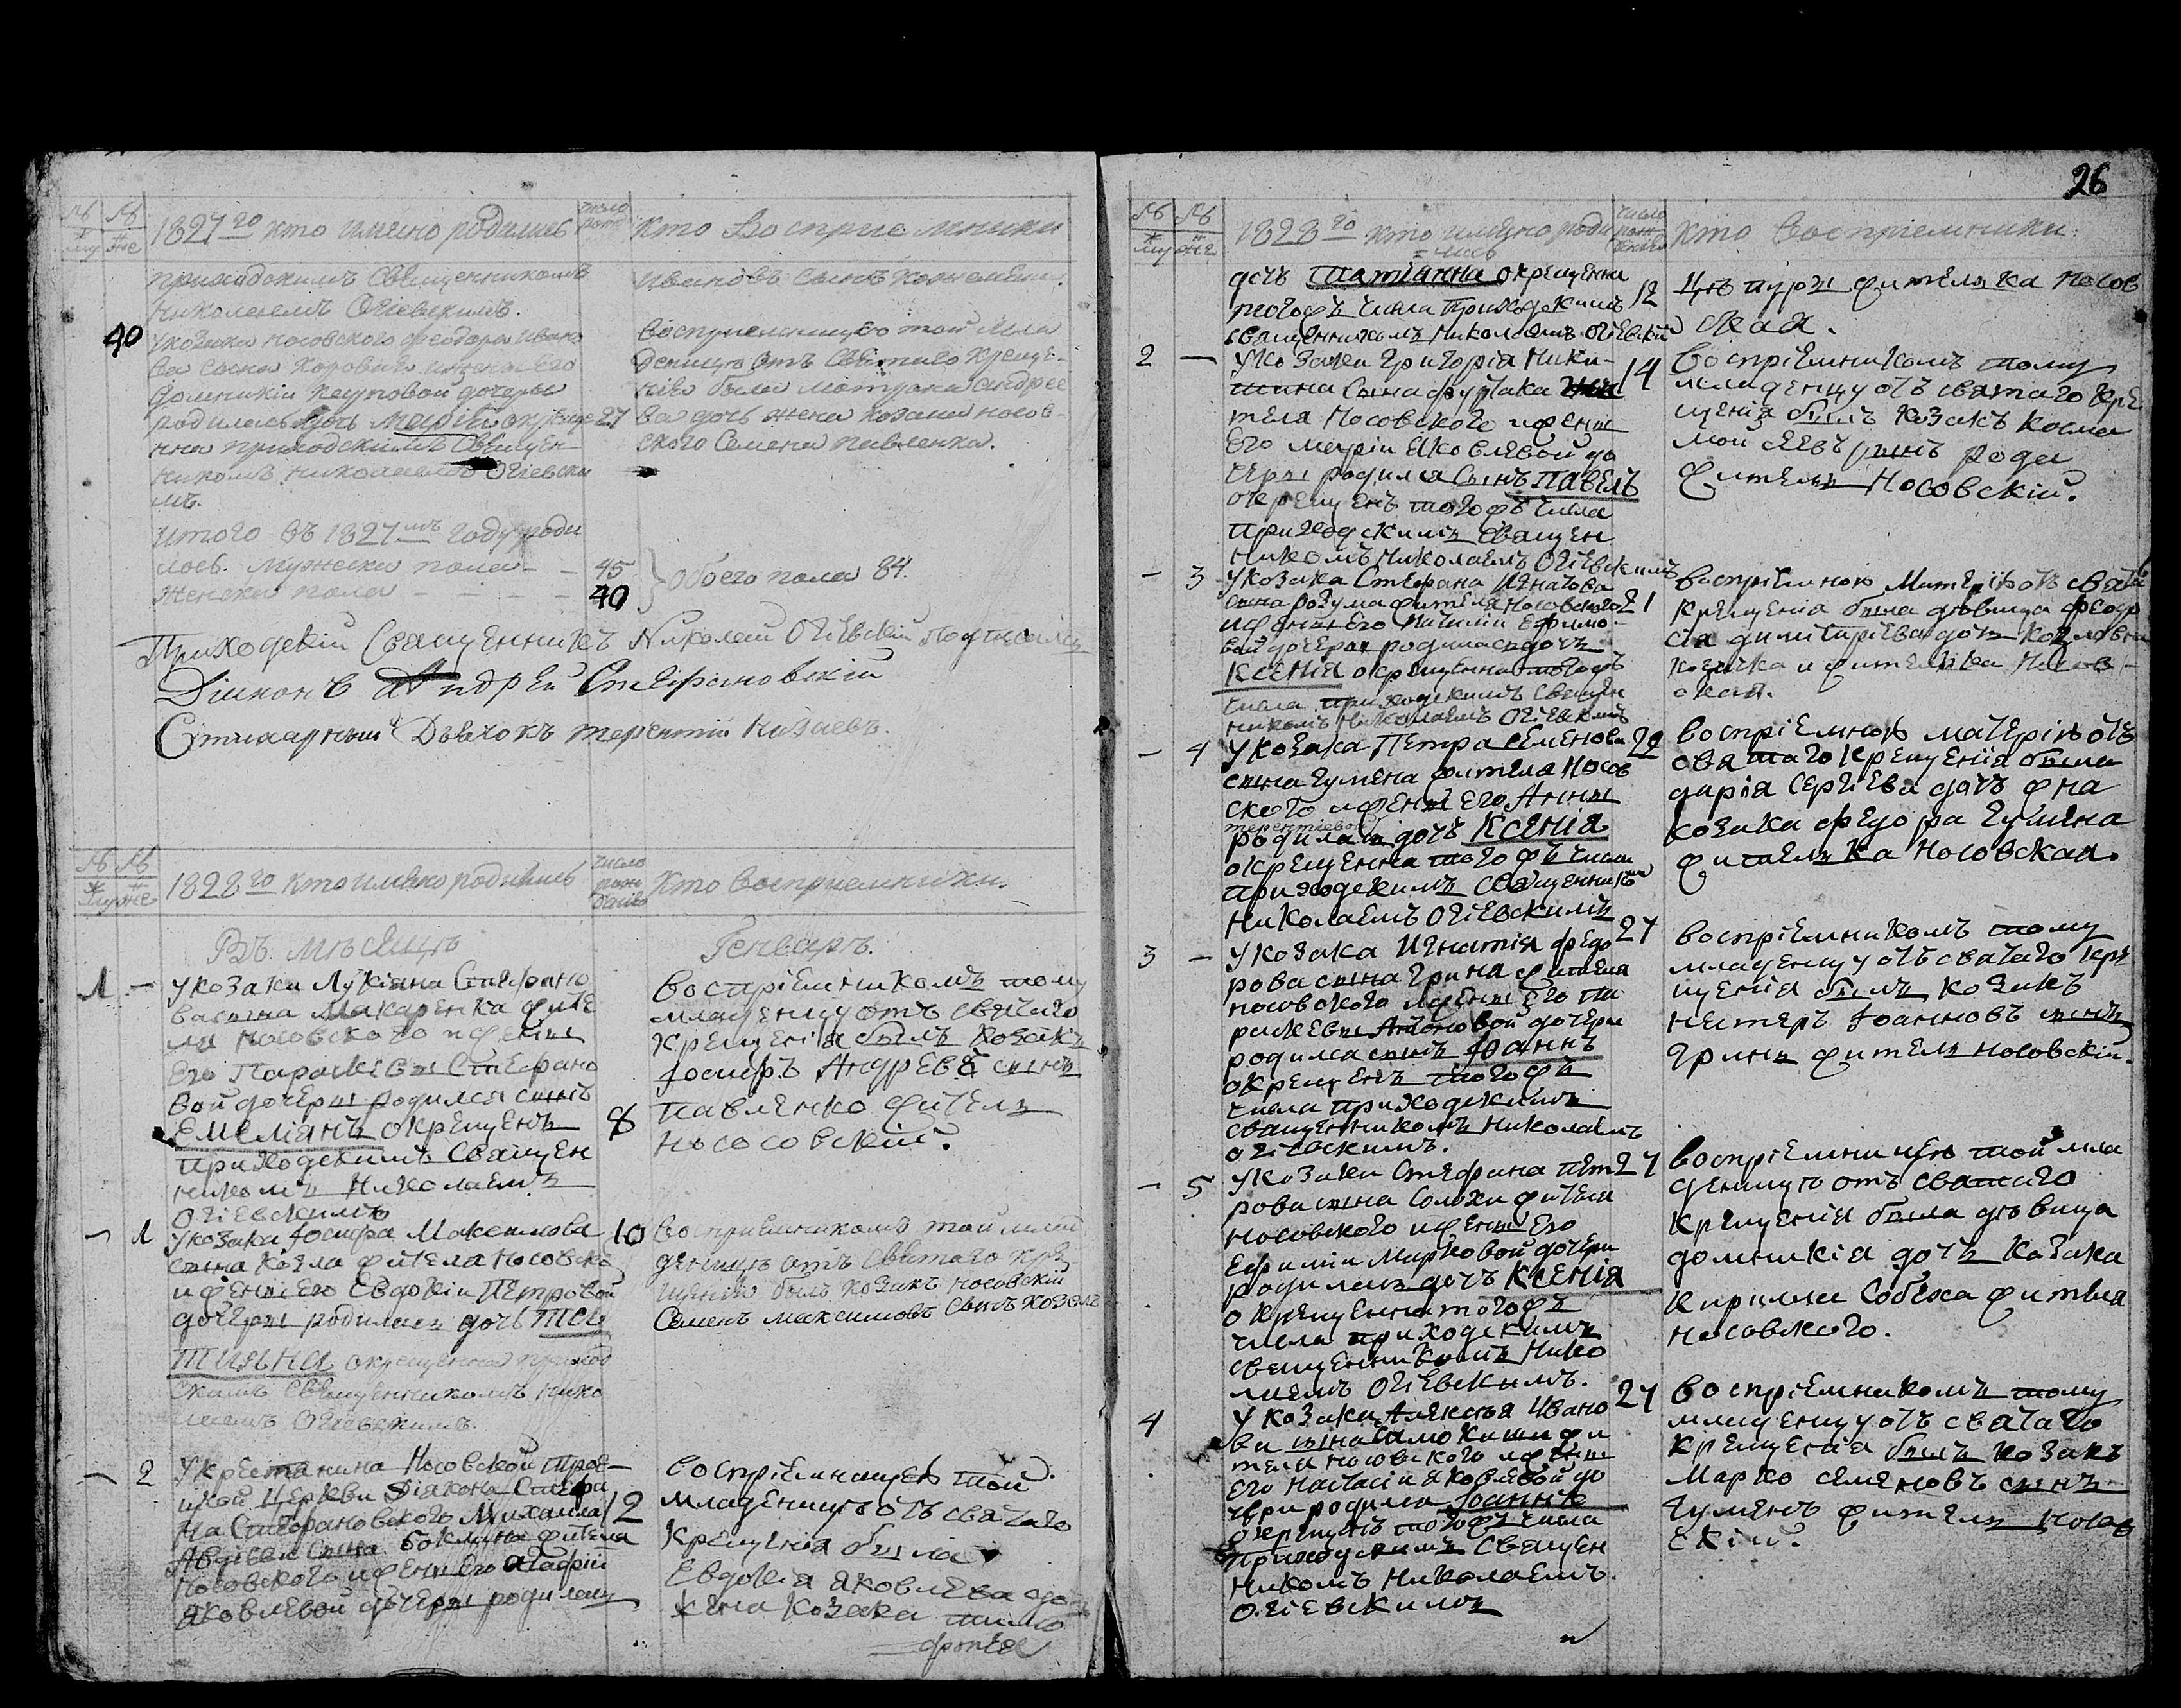 26
1827 го кто имяно родились
число рожд
кто Восприемники
приходскимъ Священникомъ
Николаемъ Огіевскимъ.
40
у козака носовского феодора Ивано
ва сына Коровая и жены Его
Домникіи Карповой дочери
родилась дочь Марія окреще
27
нна приходскимъ Священ
никомъ Николаемъ Огіевски
мъ.
Ивановъ сынъ
восприемницею той мла
деницы отъ Святаго Креще-
нія была Матрона Андрее
ва дочь жена козака носов-
ского Семена Павленка.
итого въ 1827 мъ году роди
лось. мужеска пола - - 45
женска пола - - - - 40
обоего пола 84.
Приходскій Священникъ Николай Огіевскій подписался
Діаконъ Андрей Стефановскій
Стихарный Дьячокъ терентій Низаевъ.
1828 го кто имяно родились
число рождения
кто восприемники.
Въ месяце
Генваръ.
1 -
у козака Лукіана Стефано
ва сына Макаренка жите
ля Носовского и жены
Его Параскевы Стефано
вой дочеры родился сынъ
Емеліанъ окрещенъ
8
приходскимъ Священ
никомъ Николаемъ
Огіевскимъ
воспріемникомъ тому
младенцу отъ святаго
крещенія былъ козакъ
Іосифъ Андреевъ сынъ
Павленко жителъ
нососовскій.
- 1
у козака Іосифа Максимова
10
сына Козла жителя носовско
и жены Его Евдокіи Петровой
дочеры родилась дочь Та
тияна окрещенна приход
скимъ Священникомъ Нико
лаемъ Огіевскимъ.
воспріемникомъ той мла
деницы отъ Святаго кре
щенія былъ козакъ носовскій
Семенъ максимовъ сынъ козелъ
- 2
у крестянина Носовской Трои
цкой Церкви Діакона Стефа
на Стефановского Михаила
12
Авдіева сына жителя
носовского и жены Его Агафіи
Яковлевой дочеры родилась
воспріемницею той
младеницы отъ святаго
крещенія была
Евдокія Яковлева до
жена козака
1828 го кто имяно роди
лись
число рожденія
кто воспріемники:
дочь Татіанна окрещенна
12
тогожъ числа Приходскимъ
священникомъ Николаемъ Огіевским
жителька Носов
ская.
2 -
у козака Григорія Ники-
14
тина сына жи
теля Носовского и жены
Его Маріи Яковлевой до
черы родился сынъ Павелъ
окрещенъ тогожъ числа
приходскимъ священ
никомъ Николаемъ Огіевскимъ
воспріемникомъ тому
младенцу отъ святаго кре
щенія былъ козакъ косма
сынъ
жителъ Носовскій.
- 3
у козака Стефана Игнатова
21
сына розума жителя Носовского
и жены Его Ефимо-
вой дочеры родилась дочь
Ксенія окрещенна тогожъ
числа приходскимъ Священ
никомъ Николаемъ Огіевскимъ
воспріемною Матерію отъ святаго
крещенія была девица феодо
сія димитріева дочь
козачка и жителька Носов-
ская.
- 4
у козака Петра Семенова
22
сына Гумена жителя Носов
ского и жены Его Анны
терентіевой
родилась дочь Ксенія
окрещенна тогожъ числа
приходскимъ священникомъ
Николаемъ Огіевскимъ
воспріемною матерію отъ
святаго крещенія была
дарія Сергіева дочь жена
козака федора Гумена
жителька носовская.
3 -
у козака Игнатія федо
27
рова сына Грина жителя
носовского и жены Его Па
раскевы Антоновой дочеры
родился сынъ Іоаннъ
окрещенъ тогожъ
числа приходскимъ
священникомъ Николаемъ
Огіевскимъ.
воспріемникомъ тому
младенцу отъ святаго кре
щенія былъ козакъ
Нестеръ Іоанновъ сынъ
Гринъ жителъ носовскій.
- 5
у козака Стефана Пет
27
рова сына Солохи жителя
Носовского и жены Его
Ефиміи Марковой дочери
родилась дочь Ксенія
окрещенна тогожъ
числа приходскимъ
священникомъ Нико
лаемъ Огіевскимъ.
воспріемницею той мла
деницы отъ святаго
крещенія была девица
домникія дочь козака
Кирилы жителя
носовского.
4
у козака Алексея Ивано
27
ва сына жи
теля носовского и жены
Его Настасіи Яковлевой до
чери родился Іоаннъ
окрещенъ тогожъ числа
приходскимъ Священ
никомъ Николаемъ
Огіевскимъ
воспріемникомъ тому
младенцу отъ святаго
крещенія былъ козакъ
Марко Семеновъ сынъ
Гуменъ жителъ носов
скій.